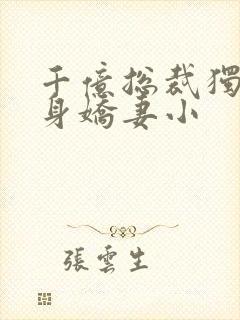 千億總裁獨
身嬌妻小
張雲生